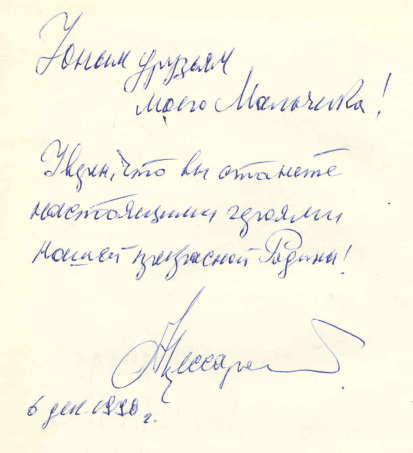 Юным друзьям
моего Мальчика!
Уверен, что вы станете
настоящими героями
нашей прекрасной Родины!
6 дек. 1990 г.